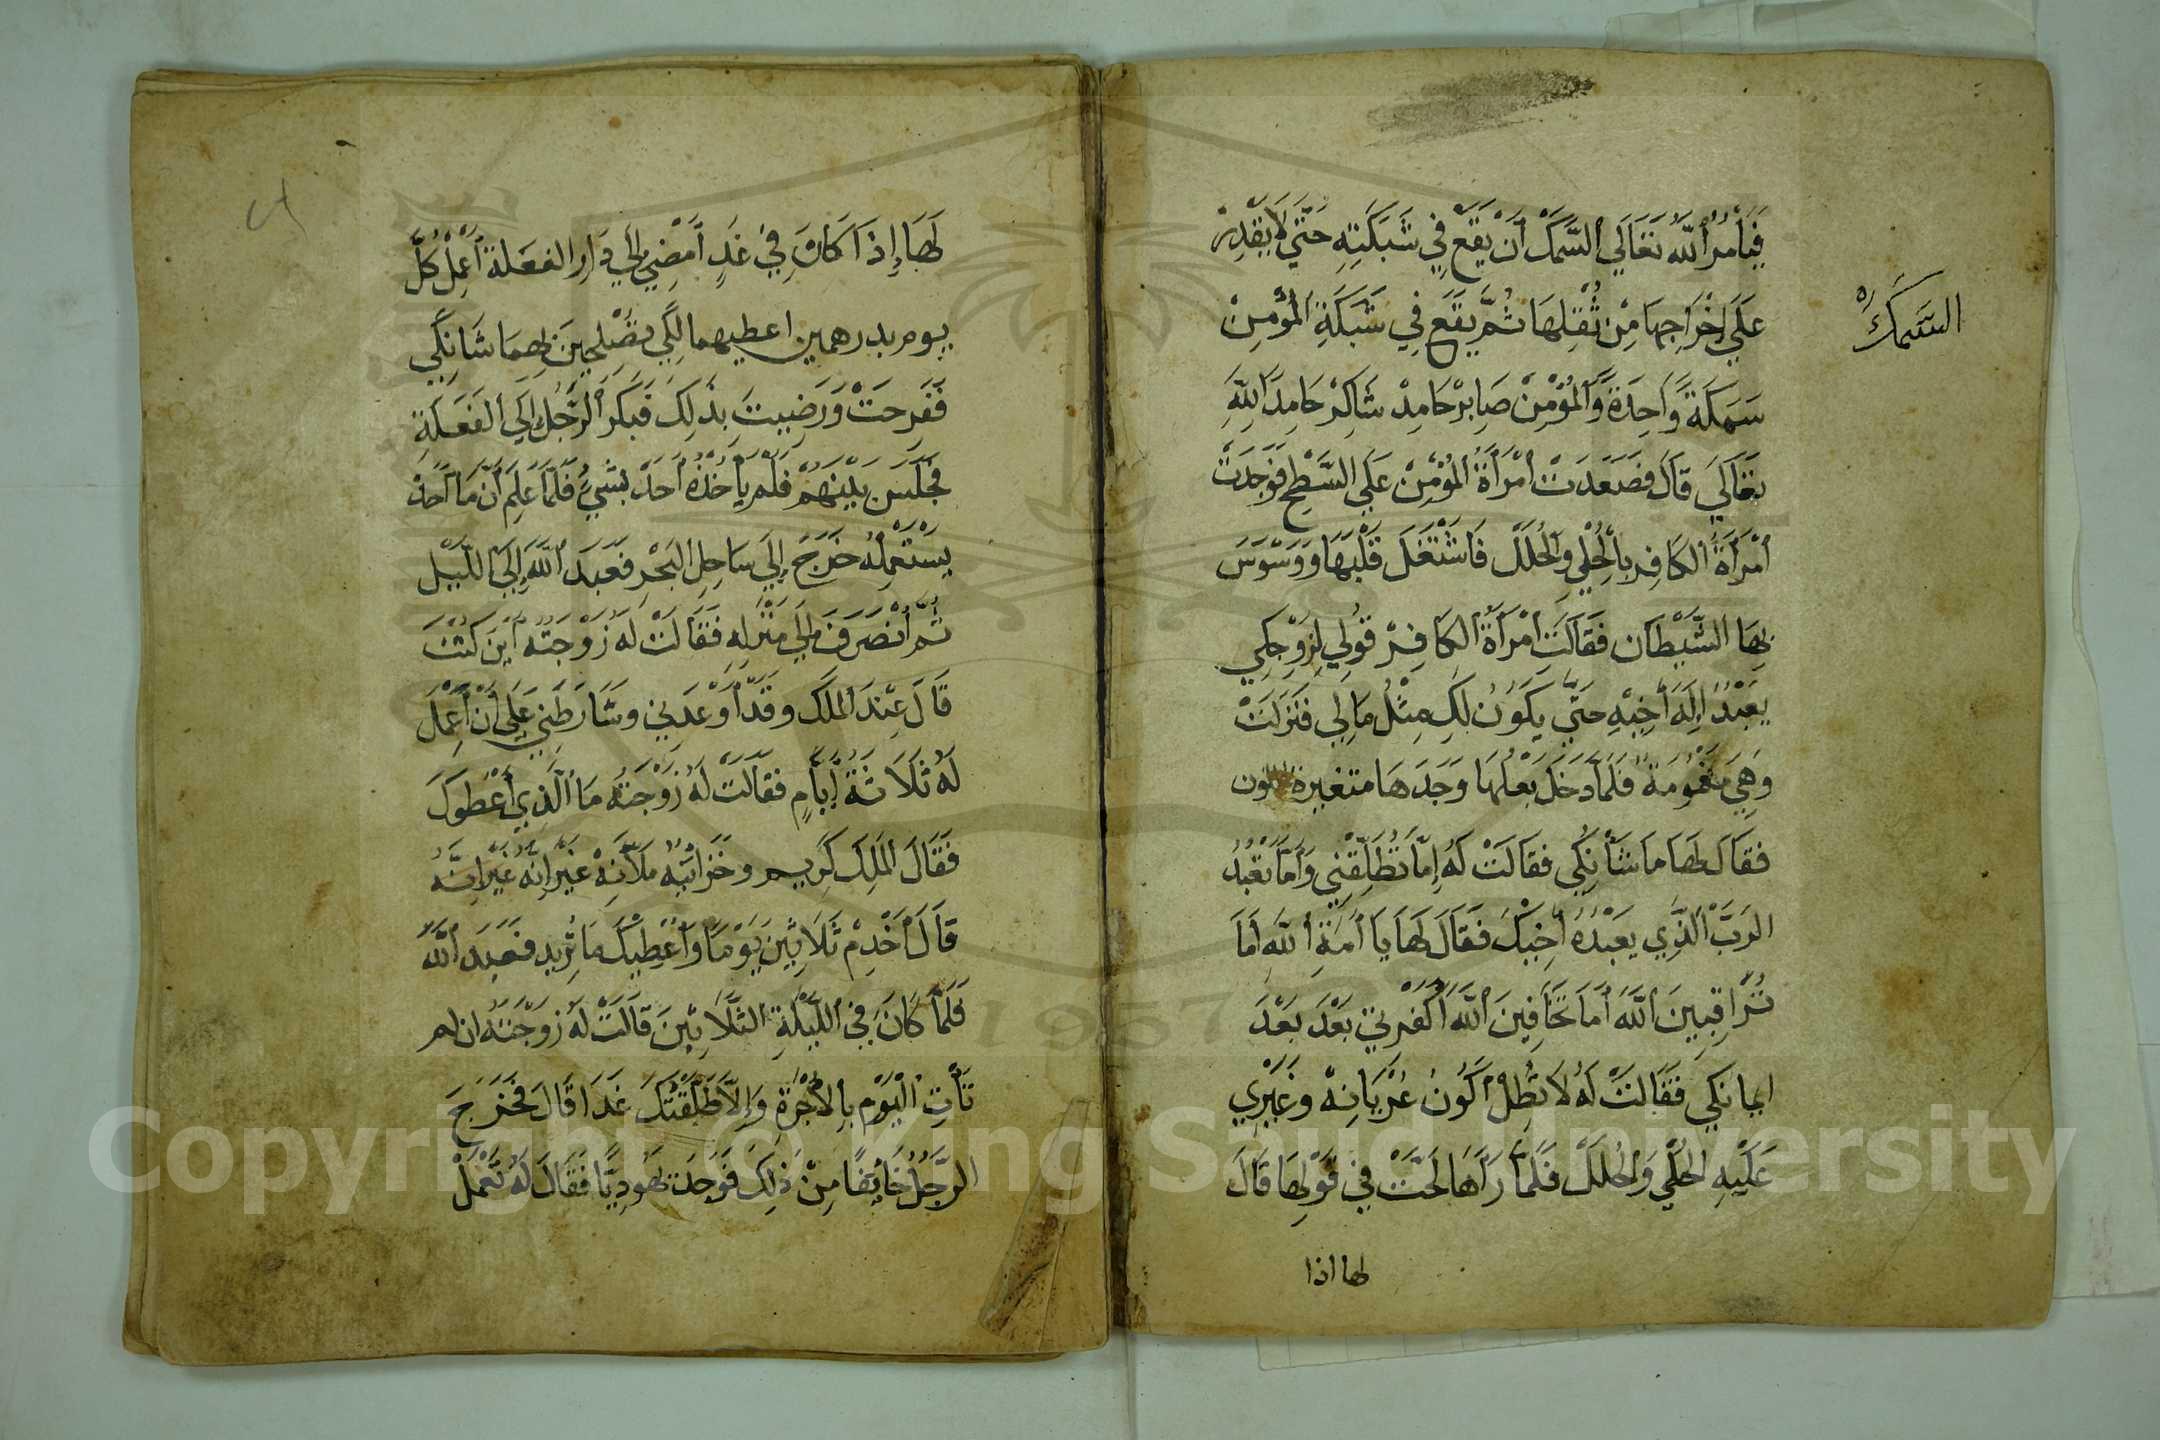 فَيَأْمُرُ ٱللَّهُ تَعَالَي ٱلسَّمَكَ أَنْ يَقَعَ فِي شَبَكَتِهِ حَتَّي لَا يَقْدِرْ
عَلَي إِخْرَاجِهَا مِنْ ثُقْلِهَا ثُمَّ يَقَعُ فِي شَبَكَةِ الْمُؤْمِنْ
السَّمَكَ
سَمَكَةً وَاحِدَةً وَٱلْمُؤْمِنْ صَابِرْ حَامِدْ شَاكِرْ حَامِدَ اللَّهِ
تَعَالَي قَالَ فَصَعَدَتْ ٱمْرَأَةُ الْمُؤْمِنْ عَلَي السَّطْحِ فَوَجَدَتْ
ٱمْرَأَةَ ٱلكَافِرِ بِالْحُلْيِ وَالْحُلَلْ فَاشْتَغَلَ قَلْبُهَا وَوَسْوَسَ
بِهَا الشَّيْطَانُ فَقَالَتِ ٱمْرَأَةُ ٱلكَافِرْ قُولِي لِزَوْجِكِي
يَعْبُدُ إِلَهَ أَخِيْهِ حَتَّي يَكُونُ لَكِ مِثْلُ مَا لِي فَنَزَلَتْ
وَهِيَ مَغْمُومَةٌ فَلَمَّا دَخَلَ بَعْلُهَا وَجَدَهَا متغيرة اللون
فَقَالَ لَهَا مَا شَأْنِكِي فَقَالَتْ لَهُ إِمَّا تُطَلِّقْنِي وَأَمَّا تَعْبُدُ
الرَبَّ ٱلَّذِي يَعْبُدُهُ أَخِيْكَ فَقَالَ لَهَا يَا أَمَةِ ٱللَّهِ أَمَا
تُرَاقِبِينَ ٱللَّهَ أَمَا تَخَافِينَ ٱللَّهَ أَكَفَرْتِي بَعْدَ بَعْدَ
ايمانكي فَقَالَتْ لَهُ لَا تُطِلْ أَكُونُ عُرْيَانَةْ وَغَيْرِي
عَلَيْهِ الْحُلْي وَالْحُلَلْ فَلَمَّا رَآهَا لَحَّتْ فِي قَوْلِهَا قَالَ
لها اذا
لَهَا إِذَا كَانَ فِي غَدٍ أَمْضِي إِلَي دَارِ الفعلة أَعْمَلْ كُلَّ
يوم بدرهمين اعطيهما لَكِي تُصْلِحِينَ بِهِمَا شَانِكِي
فَفَرِحَتْ وَرَضِيَتَ بِذَلِكَ فَبَكَرَ ٱلرَّجُلُ إِلَي ٱلفَعَلَةِ
فَجَلَسَ بَيْنَهُمْ فَلَمْ يَأْخُذْهُ أَحَدْ بِشَيْءٍ فَلَمَّا عَلِمَ أَنَّ مَا أَحَدْ
يَسْتَعْمِلُهُ خَرَجَ إِلَي سَاحِلِ البَحْرِ فَعَبَدَ ٱللَّهَ إِلَي اللَّيْلِ
ثُمَّ ٱنْصَرَفَ إِلَي مَنْزِلِهِ فَقَالَتْ لَهُ زَوْجَتُهُ أَيْنَ كُنْتَ
قَالَ عِنْدَ ٱلمَلَكِ وَقَدْ أَوْعَدَنِي وَشَارَطَنِي عَلَي أَنْ أَعْمَلَ
لَهُ ثَلَاثَةَ أَيَّامٍ فَقَالَتْ لَهُ زَوْجَتُهُ مَا ٱلَّذِي أَعْطَوكَ
فَقَالَ ٱلمَلِكَ كَرِيم وَخَزَائِنُهُ مَلْآنَةْ غَيْرَ إِنَّهُ غَيْرَ إِنَّهُ
قَالَ أَخْدِمْ ثَلَاثِينَ يَوْمًا وَأَعْطِيكَ مَا تُرِيد فَعَبَدَ ٱللَّهَ
فَلَمَّا كَانَ فِي ٱللَّيْلَةِ الثَّلَاثِينَ قَالَتْ لَهُ زَوْجَتُهُ ان لم
تَأْتِ الْيَوْمَ بِالْأُجْرَةِ وَإِلَّا طَلَّقْتُكَ غَدَا قَالَ فَخَرَجَ
الرَّجُلُ خَائِفًا مِنْ ذَلِكَ فَوَجَدَ يَهُودِيًّا فَقَالَ لَهُ تَعْمَلْ
Copyright © King Saud University
1957